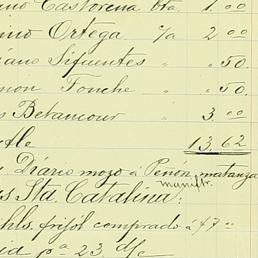 ino Castorena Cta 1.00
ino Ortega c/a 2.00
iano Sifuentes " .50
mon Fonche " .50
s Betancour " 3.00
13.62
Diario mozo á Peñón, matanza
maniftr.
as Sta Catalina:
hls. frijól comprado á $7
pª 23. d/c